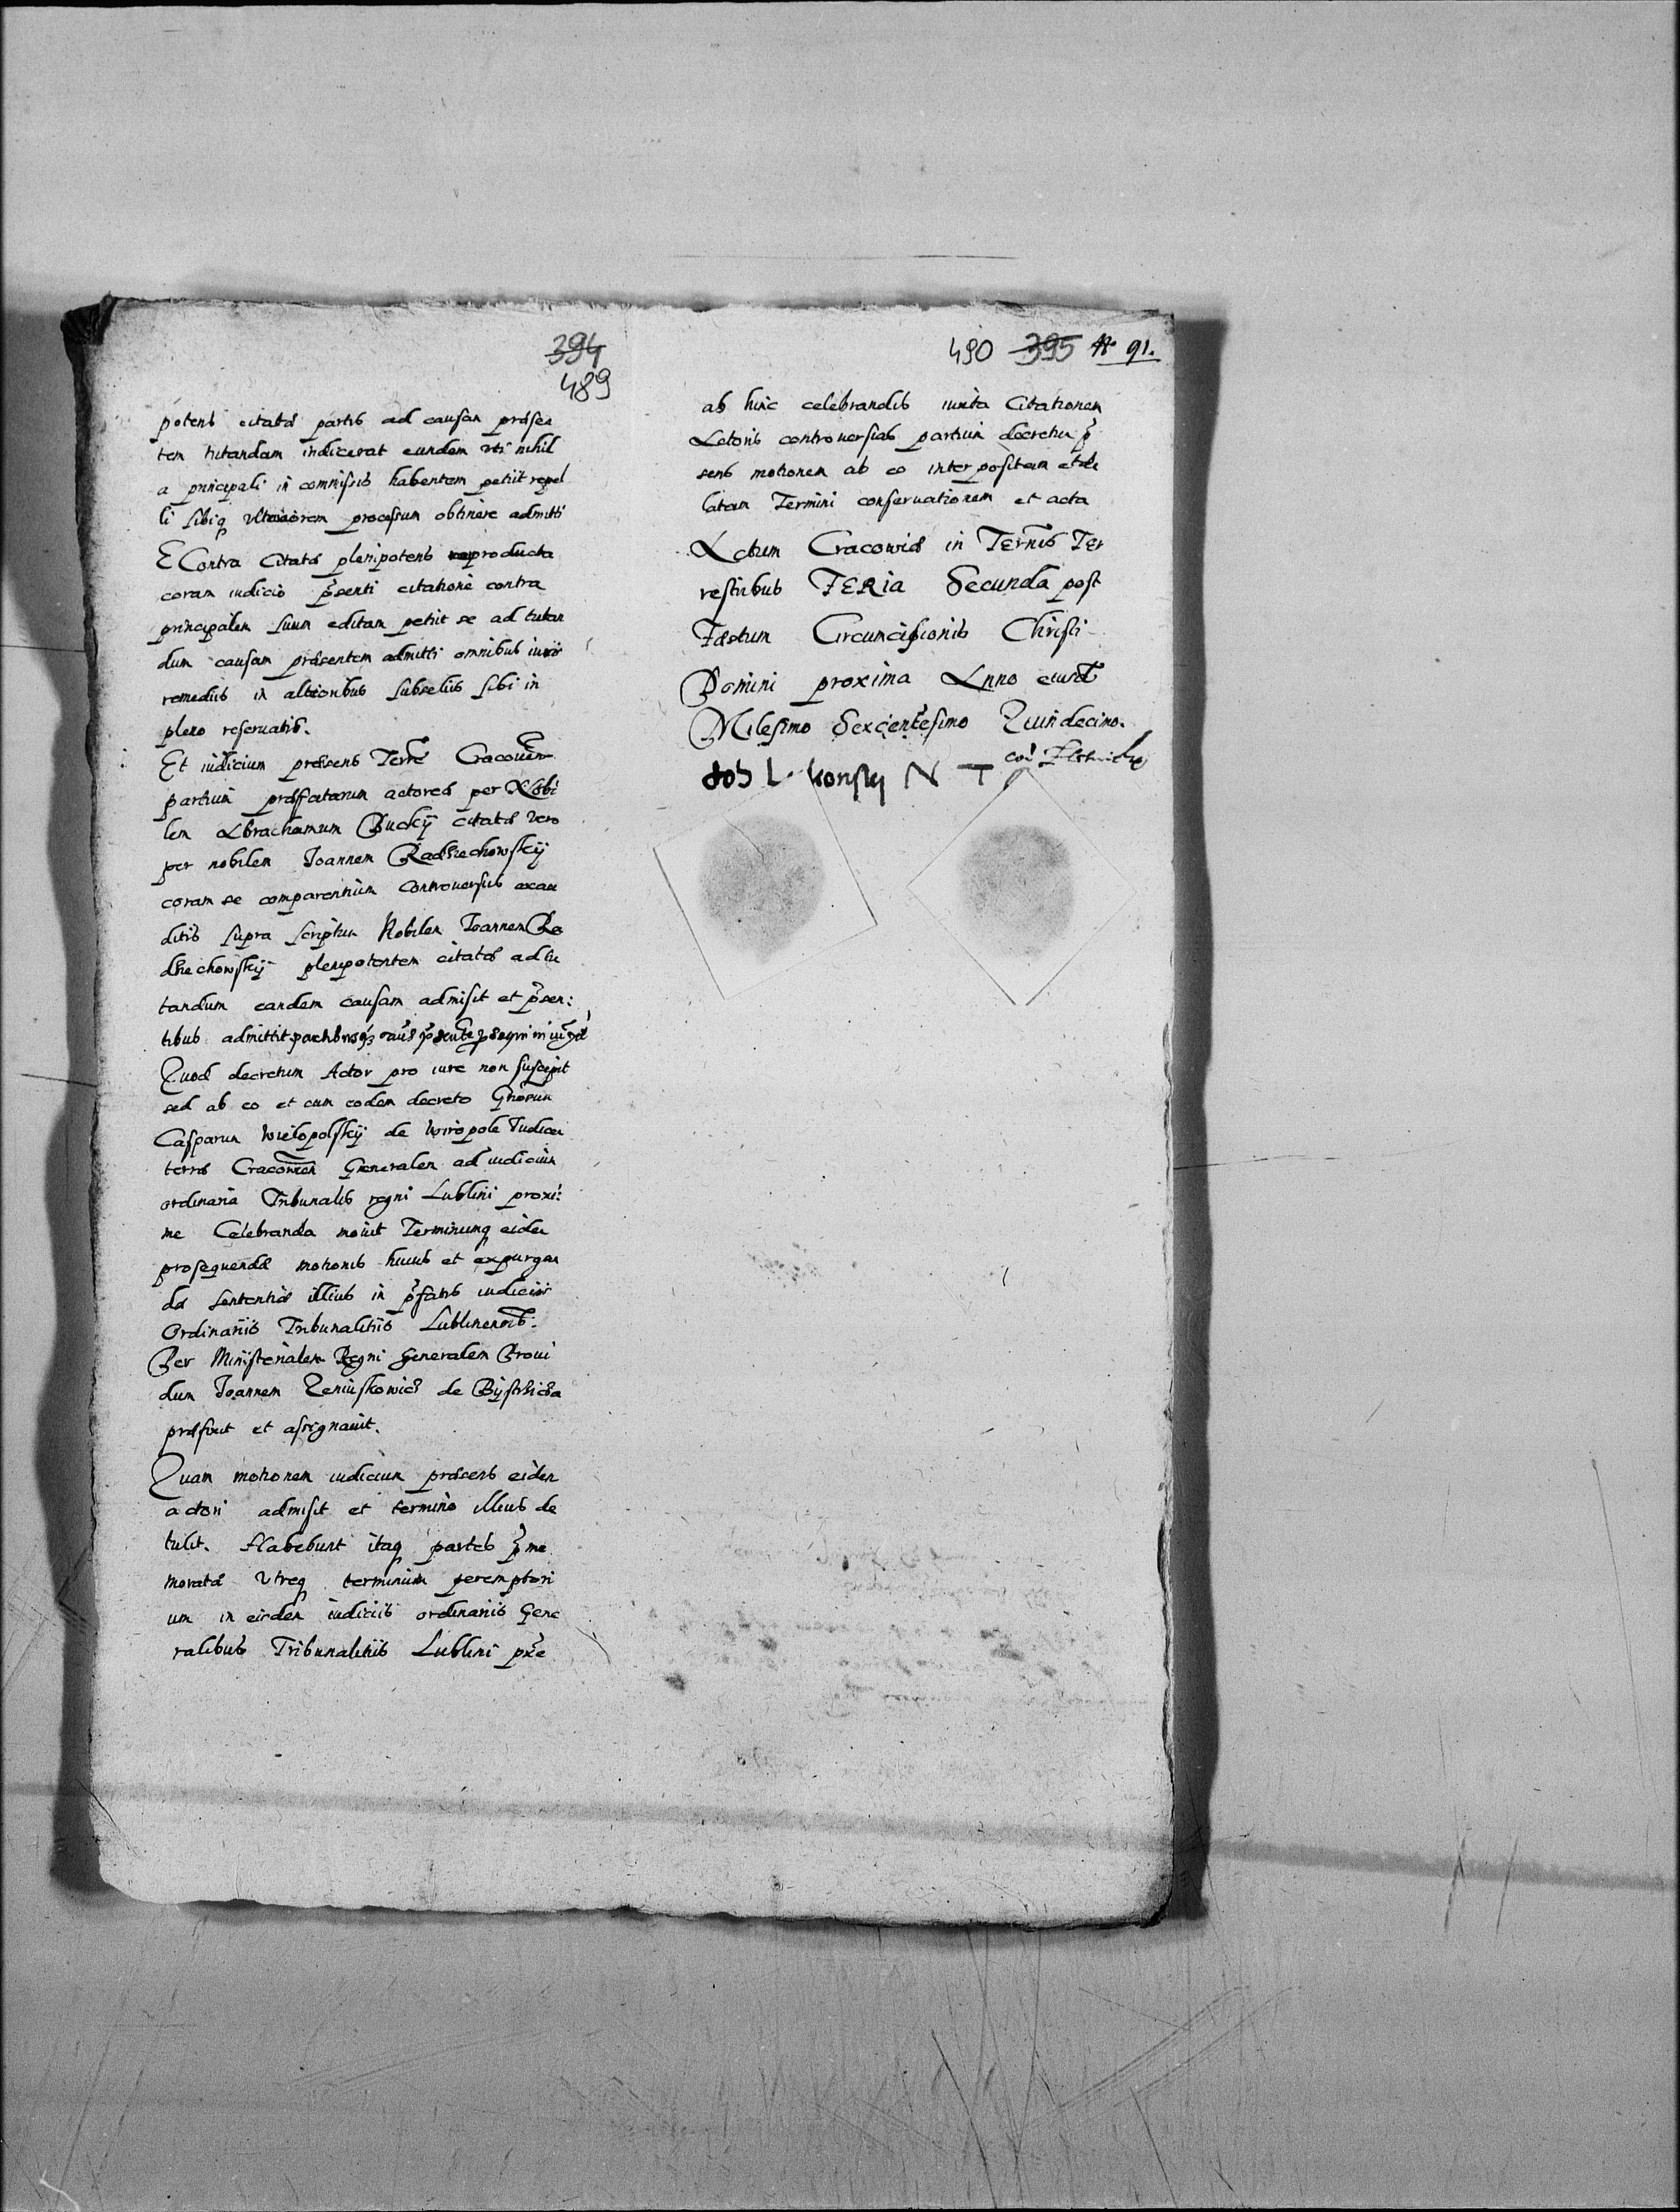 394
489
potens citatæ partis ad causam præsen
tem tutandam indicerat eundem uti nihil
a principali in commissis habentem petiit repel
li sibiq ulteriorem processum obtinere admitti
E Contra Citatæ plenipotens reproducta
coram iudicio pnsenti citatione contra
principalem suum editam petiit se ad tutan
dum causam præsentem admitti omnibus iuris
remediis in altioribus subseliis sibi in
pleno reservatis.
Et iudicium præsens Terræ Cracovien
partium præfatarum actoreæ per Nobi
lem Abrahamum Bucky citatæ vero
per nobilem Joannem Radziechowskij
coram se comparentium controversiis exau
ditis supra scriptum Nobilem Joannem Ra
dziechowskij plenipotentem citatæ ad tu
tandum eandem causam admisit et pnsen:
tibus admittit partibus
Quod decretum Actor pro iure non suscepit
sed ab eo et cum eodem decreto Gnosum
Casparum Wielopolskij de Wiropole Judicem
terræ Cracovien Generalem ad iudicium
ordinaria Tribunalis regni Lublini proxi:
me Celebranda movit Terminumq eidem
prosequendæ motionis huius et expurgan
dæ sententiæ illius in pfatis iudiciis
Ordinariis Tribunalitiis Lublinensib:
Per Ministerialem Regni Generalem Provi
dum Joannem Zeniuskowicz de Bijstrzicza
præfixit et assignavit.
Quam motionem iudicium præsens eidem
actori admisit et termino illius de
tulit. Habebunt itaq partes pme
moratæ utreq terminum peremptori
um in eisdem iudiciis ordinariis Gene
ralibus Tribunalitiis Lublini pxe
490 395 91.
ab hinc celebrandis iuxta Citationem
Actoris controversias partium decretum p
sens motionem ab eo interpositam et de
latam Termini conservationem et acta
Actum Cracoviæ in Terñis Ter
restribus FERia Secunda post
Festum Circumcisionis Christi
Domini proxima Anno eiusd
Milesimo Sexcentesimo Quindecimo.
N T